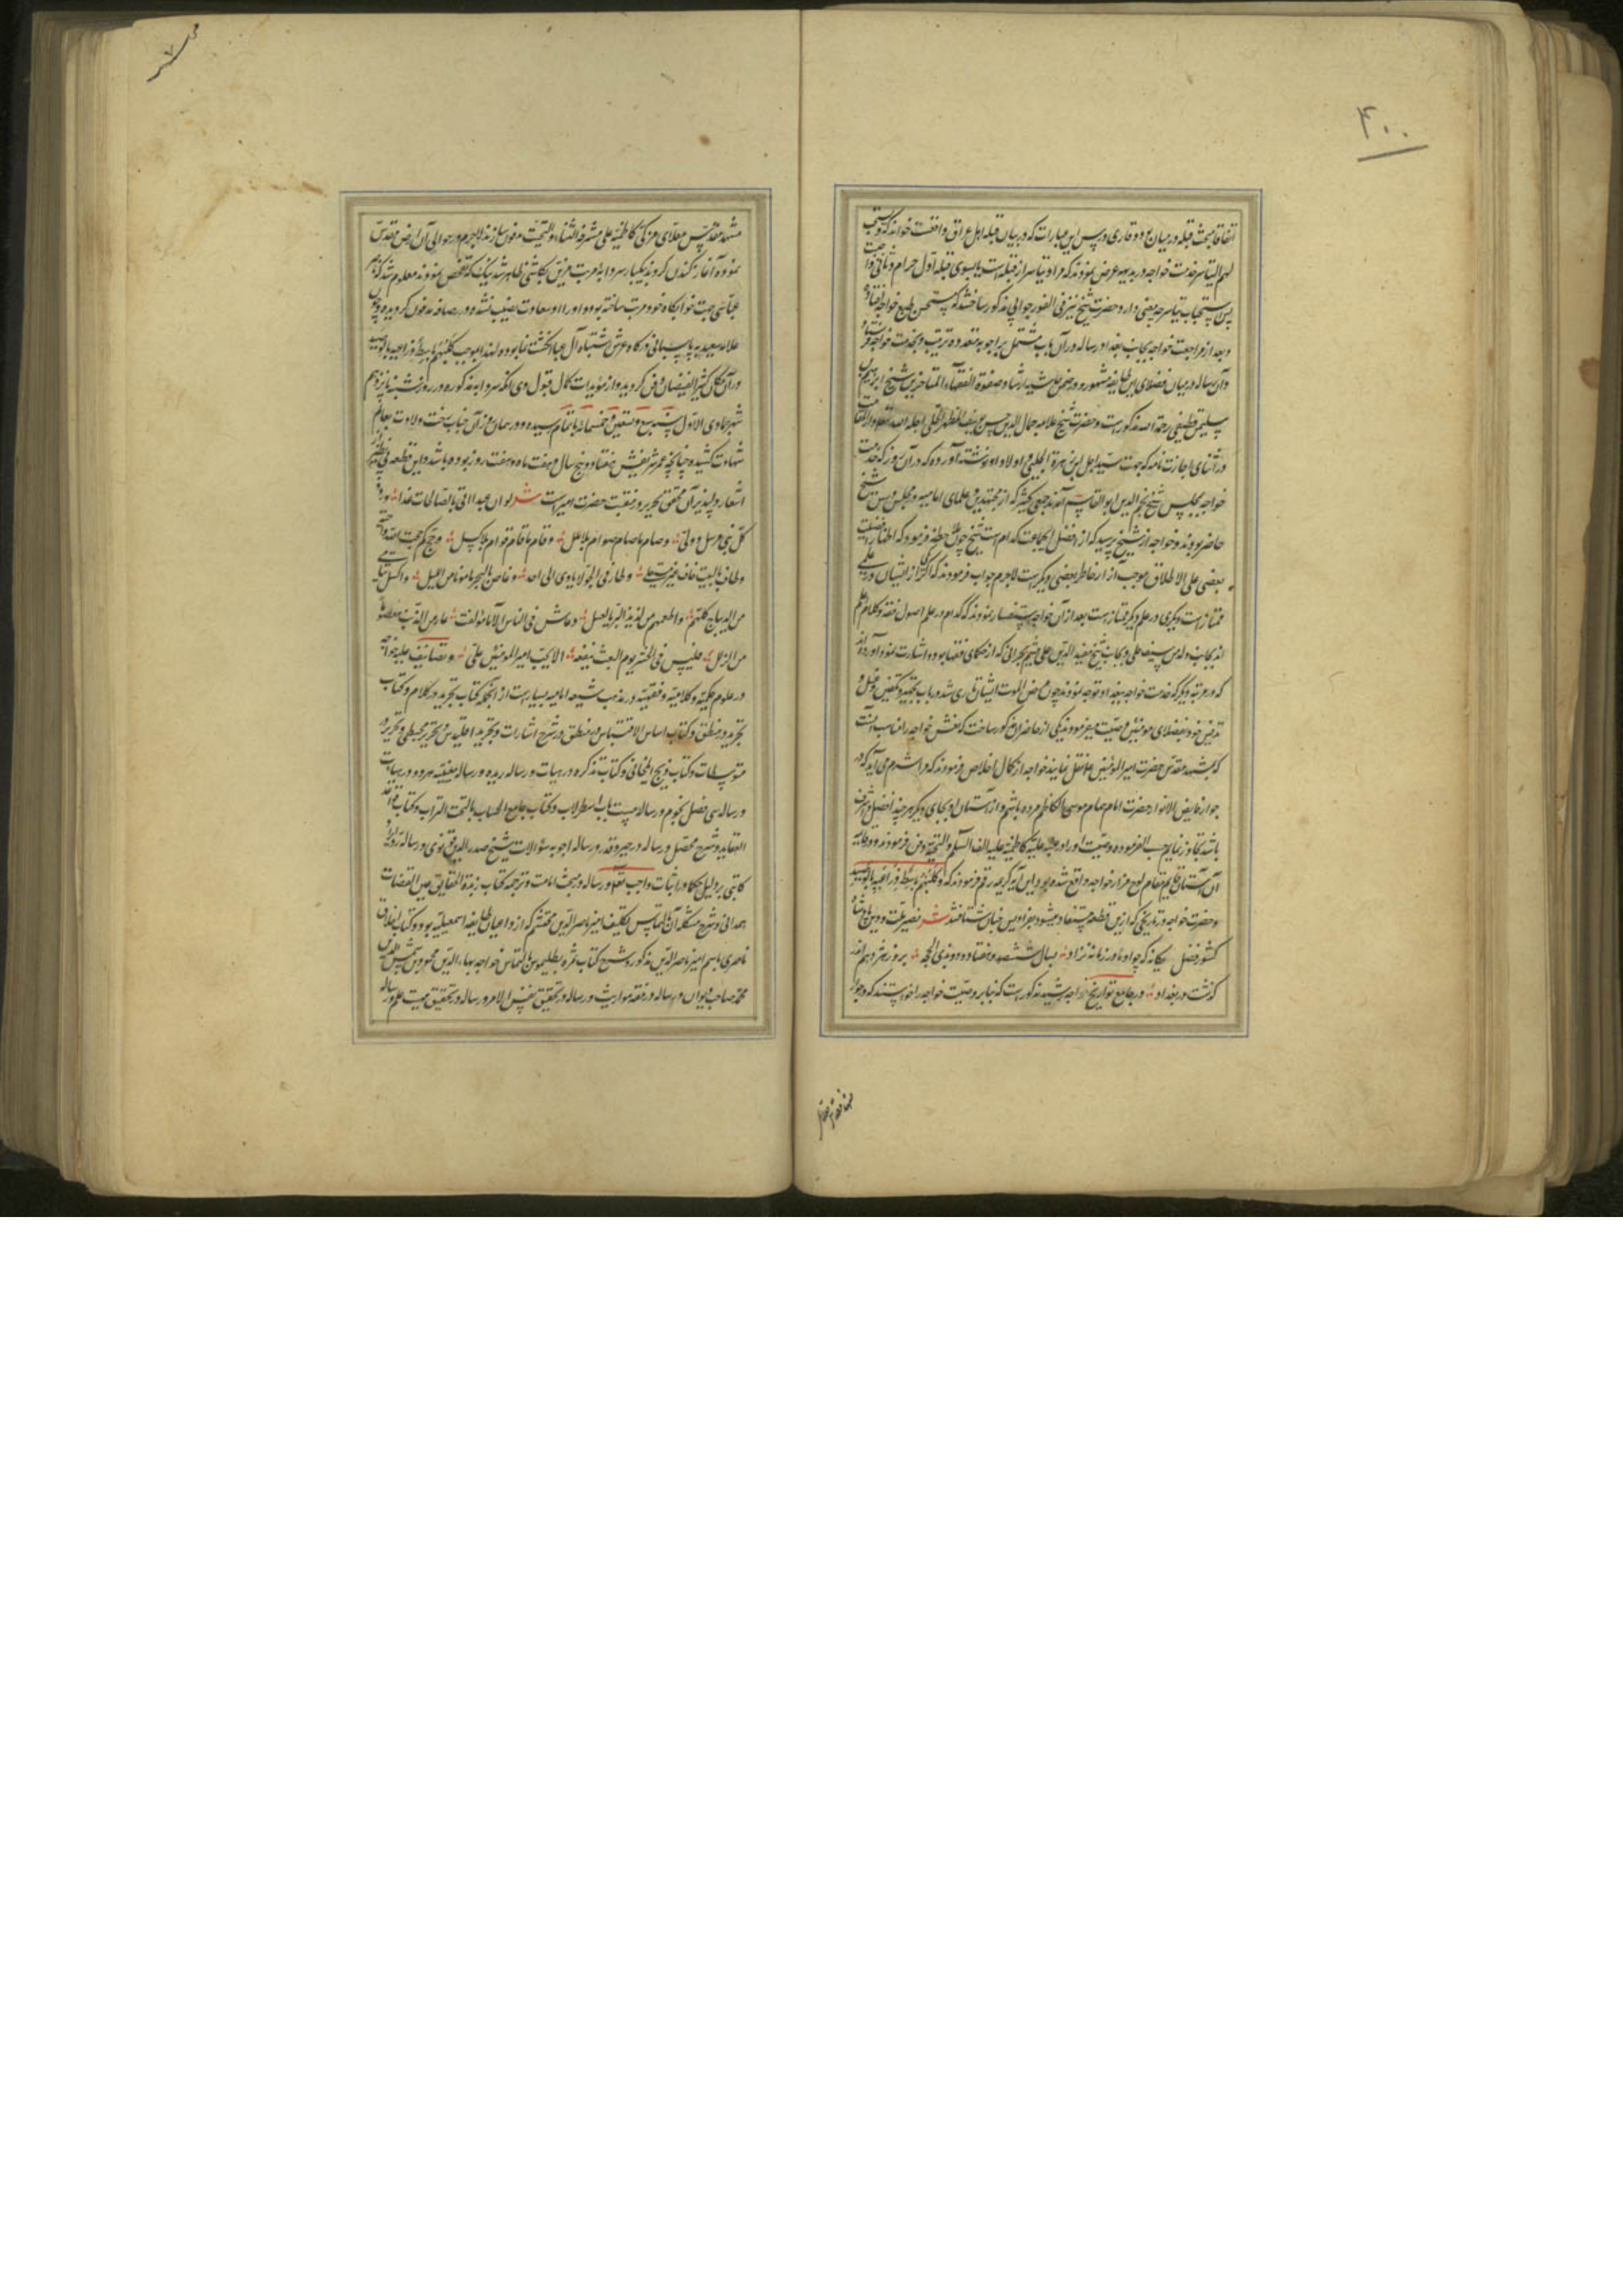 ۴۰۰
اتفاقا مبحث قبله در میان بود و قاری درس این عبارات که در بیان قبله اهل عراق واقعست خواند که و یستحب
لهم التیاسر خدمت خواجه در بدیهه عرض نمودند که مراد تیاسر از قبله است یا بسوی قبله اول حرام و ثانی واجب
پس استحباب تیاسر چه معنی دارد حضرت شیخ نیز فی الفور جوابی مذکور ساختند که مستحسن طبع خواجه افتاد
و بعد از مراجعت خواجه بجانب بغداد رساله در آن باب مشتمل بر اجوبه متعدده ترتیب و بخدمت خواجه فرستاد
و آن رساله در میان فضلای این طایفه مشهور و در ضمن حاشیه ارشاد صفوة الفقهاء المتاخرین شیخ ابراهیم بن
سلیمن قطیفی رحمة الله مذکور است و حضرت شیخ علامه جمال الدین حسن بن یوسف المطهر الحلی
در اثنای اجازت نامه که جهت سید اجل ابن زهرة الحلبی و اولاد او نوشته آورده که در آن روز که خدمت
خواجه بمجلس شیخ نجم الدین ابو القاسم آمدند جمعی کثیر که از مجتهدین و علمای امامیه در مجلس درس شیخ
حاضر بودند و خواجه از شیخ پرسید که از افضل الجماعت کدام است شیخ چون ملاحظه فرمود که اظهار افضلیت
بعضی علی الاطلاق موجب آزار خاطر بعضی دیگر است لاجرم جواب فرمودند که اگر یکی از ایشان در علمی
ممتاز است دیگری در علم دیگر ممتاز است بعد از آن خواجه استفسار نمودند که کدام در علم اصول فقه و کلام اعلم
اند بجانب والدم سدید الدین یوسف علی و بجانب شیخ مفید الدین علی بن جهیم بحرانی که از حکمای فقها بوده اشارت نمود و آورده اند
که در مرتبه دیگر که خدمت خواجه ببغداد توجه نمودند چون مرض الموت ایشان طاری شد در باب تجهیز و تکفین و غسل و
تدفین خود بفضلای مومنین وصیت میفرمودند یکی از حاضران مذکور ساخت که نعش خواجه را مناسب آنست
که بمشهد مقدس حضرت امیر المومنین علی نقل نمایند خواجه از کمال اخلاص فرمودند که مرا شرم می آید که در
جوار فایض الانوار حضرت امام همام موسی الکاظم مرده باشم و از آستان او بجای دیگر هر چند افضل و اشرف
باشد تجاوز نمایم حسب الفرموده وصیت او را در عتبه علیه کاظمیه علیه الف السلم و التحیة دفن فرمودند و در حاشیه
آن آستان قایم مقام لوح مزار خواجه واقع شده بود این آیه کریمه رقم فرمودند که و کلبهم باسط ذراعیه بالوصید
و حضرت خواجه در تاریخی که ازین قطعه مستفاد میشود بفرادیس جنان شتافتند شعر نصیر ملت و دین پادشاه
کشور فضل یگانه که چو او مادر زمانه نزاد بسال ششصد و هفتاد و دو بذی الحجه بروز هژدهم اندر
گذشت در بغداد و در جامع تواریخ خواجه رشید مذکور است که بنابر وصیت خواجه را خواستند که در جوار
مشهد مقدس معلای مزکی کاظمیه علی مشرفه الثناء و التحیت مدفون سازند لاجرم در حوالی آن ارض مقدس
نموده آغاز کندن کردند یکبار سردابه مرتب مزین بکاشی ظاهر شد بیک که تفحص نمودند معلوم شد که ناصر
عباسی جهت خوابگاه خود مرتب ساخته بود و او را او سعادت نصیب نشده و در رصافه مدفون گردیده و چون
درگاه عرش اشتباه آل عبا انگشت نما بوده لهذا بموجب کلبهم باسط ذراعیه بالوصید
در آن مکان کثیر الفیضان دفن گردید و از مؤیدات کمال قبول وی آنکه سردابه مذکوره در روز شنبه یازدهم
شهر جمادی الاول سنه سبع و تسعین و خمسمائه باتمام رسیده و در همان روز آن جناب رخت ولادت بعالم
شهادت کشیده چنانچه عمر شریفش هفتاد و پنج سال و هفت ماه و هفت روز بوده باشد و این قطعه فی نظیر از
اشعار دلپذیر آن محقق تحریر در منقبت حضرت امیر است شعر لو ان عبدا اتی بالصالحات غدا و ود
کل نبی مرسل و ولی و صام ما صام صوام بلا ملل و قام ما قام قوام بلا کسل و حج کم حجت لله واجبة
و طاف بالبیت حاف غیر منتعل و طار فی الجو لا یاوی الی احد و غاص فی البحر مامونا من البلل و اکسی الیتامی
من الدیباج کلهم و اطعمهم من لذیذ البر بالعسل و عاش فی الناس آلافا مؤلفة عار من الذنب معصوما
من الزلل فلیس فی الحشر یوم البعث ینفعه الا بحب امیر المومنین علی و تصانیف علیه خواجه
در علوم حکمیه و کلامیه و فقهیه در مذهب شیعه امامیه بسیار است از آنجمله کتاب تجرید در کلام و کتاب
تجرید در منطق و کتاب اساس الاقتباس در منطق و شرح اشارات و تجرید اقلیدس و تحریر مجسطی و تحریر
متوسطات و کتاب زیج ایلخانی و کتاب تذکره در هیات و رساله زبده و رساله معینیه هر دو در هیات
و رساله سی فصل نجوم و رساله بیست باب اسطرلاب و کتاب جامع الحساب بالتخت و التراب و کتاب قواعد
العقاید و شرح محصل و رساله در جبر و قدر و رساله اجوبه سؤالات شیخ صدر الدین قونوی و رساله رد ایراد
کاتبی بر دلیل حکما در اثبات واجب تعالی و رساله در مبحث امامت و ترجمه کتاب زبدة الحقایق عین القضات
همدانی و شرح مشکله آن بالتماس و تکلیف امیر ناصر الدین محتشم که از داعیان طایفه اسمعیلیه بود و کتاب اخلاق
ناصری باسم امیر ناصر الدین مذکور و شرح کتاب ثمره بطلیموس بالتماس خواجه بهاء الدین محمد بن شمس الدین
محمد صاحب دیوان و رساله در فقه مواریث و رساله در تحقیق نفس الامر و رساله در تحقیق معیت علم و رساله